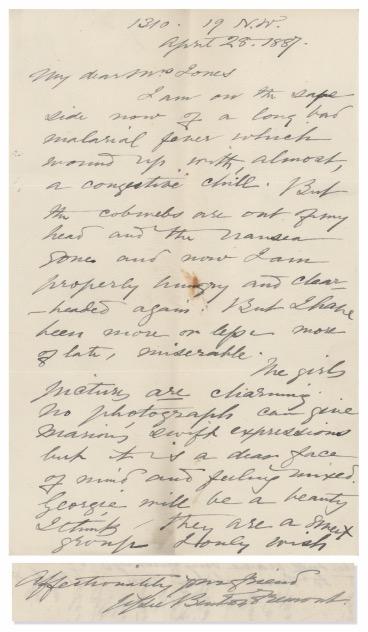 1310. 19 N.W.
April 28. 1887.
My dear Mrs Jones
I am on the safe
side now of a long bad
malarial fever which
wound up with, almost,
a congestive chill. But
the cobwebs are out of my
head and the nausea
gone and now I am
properly hungry and clear-
-headed again. But I have
been more or less, more
of late, miserable.
The girls
pictures are charming.
No photograph can give
Marion's swift expressions
but it is a dear face
of mind and feeling mixed.
Georgie will be a beauty
I think - They are a sweet
group I only wish
Affectionately your friend
Jessie Benton Frémont.